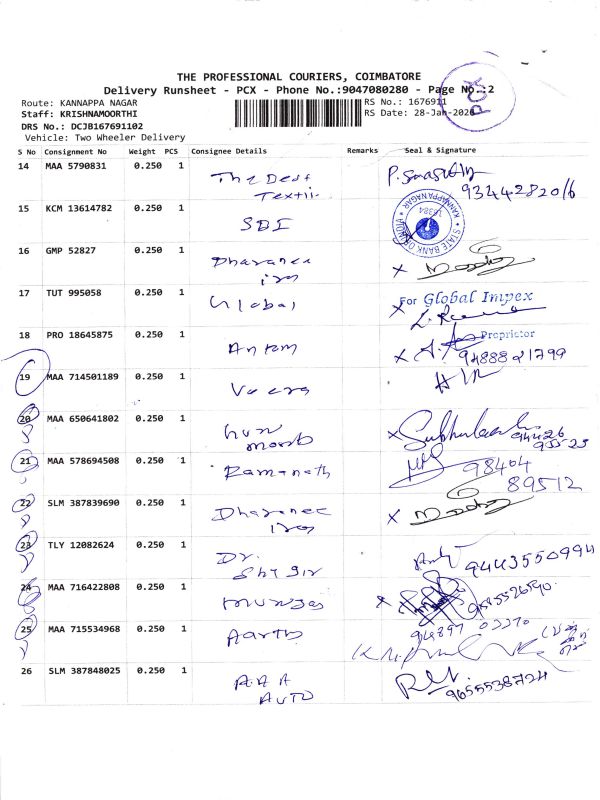 THE PROFESSIONAL COURIERS, COIMBATORE
Delivery Runsheet - PCX - Phone No.:9047080280 - Page No.:2
PCX
Route: KANNAPPA NAGAR
RS No.: 1676911
Staff: KRISHNAMOORTHI
RS Date: 28-Jan-2020
DRS No.: DCJB167691102
Vehicle: Two Wheeler Delivery
S No Consignment No Weight PCS Consignee Details Remarks Seal & Signature
14 MAA 5790831 0.250 1 The Best
Textil
9344282016
15 KCM 13614782 0.250 1 SBI
STATE BANK OF INDIA KANNAPPA NAGAR 16384
16 GMP 52827 0.250 1 Dharanee
X
17 TUT 995058 0.250 1 Global
X For Global Impex
Proprietor
18 PRO 18645875 0.250 1 Antem
X 9488821799
19 MAA 714501189 0.250 1
20 MAA 650641802 0.250 1
X 94426
95525
21 MAA 578694508 0.250 1 Ramanath
98404
89512
22 SLM 387839690 0.250 1 Dharanee
X
23 TLY 12082624 0.250 1 Dr.
9443550994
24 MAA 716422808 0.250 1
X
25 MAA 715534968 0.250 1 Aarthi
94897 02270
26 SLM 387848025 0.250 1 AAA
AUTO
9655538724